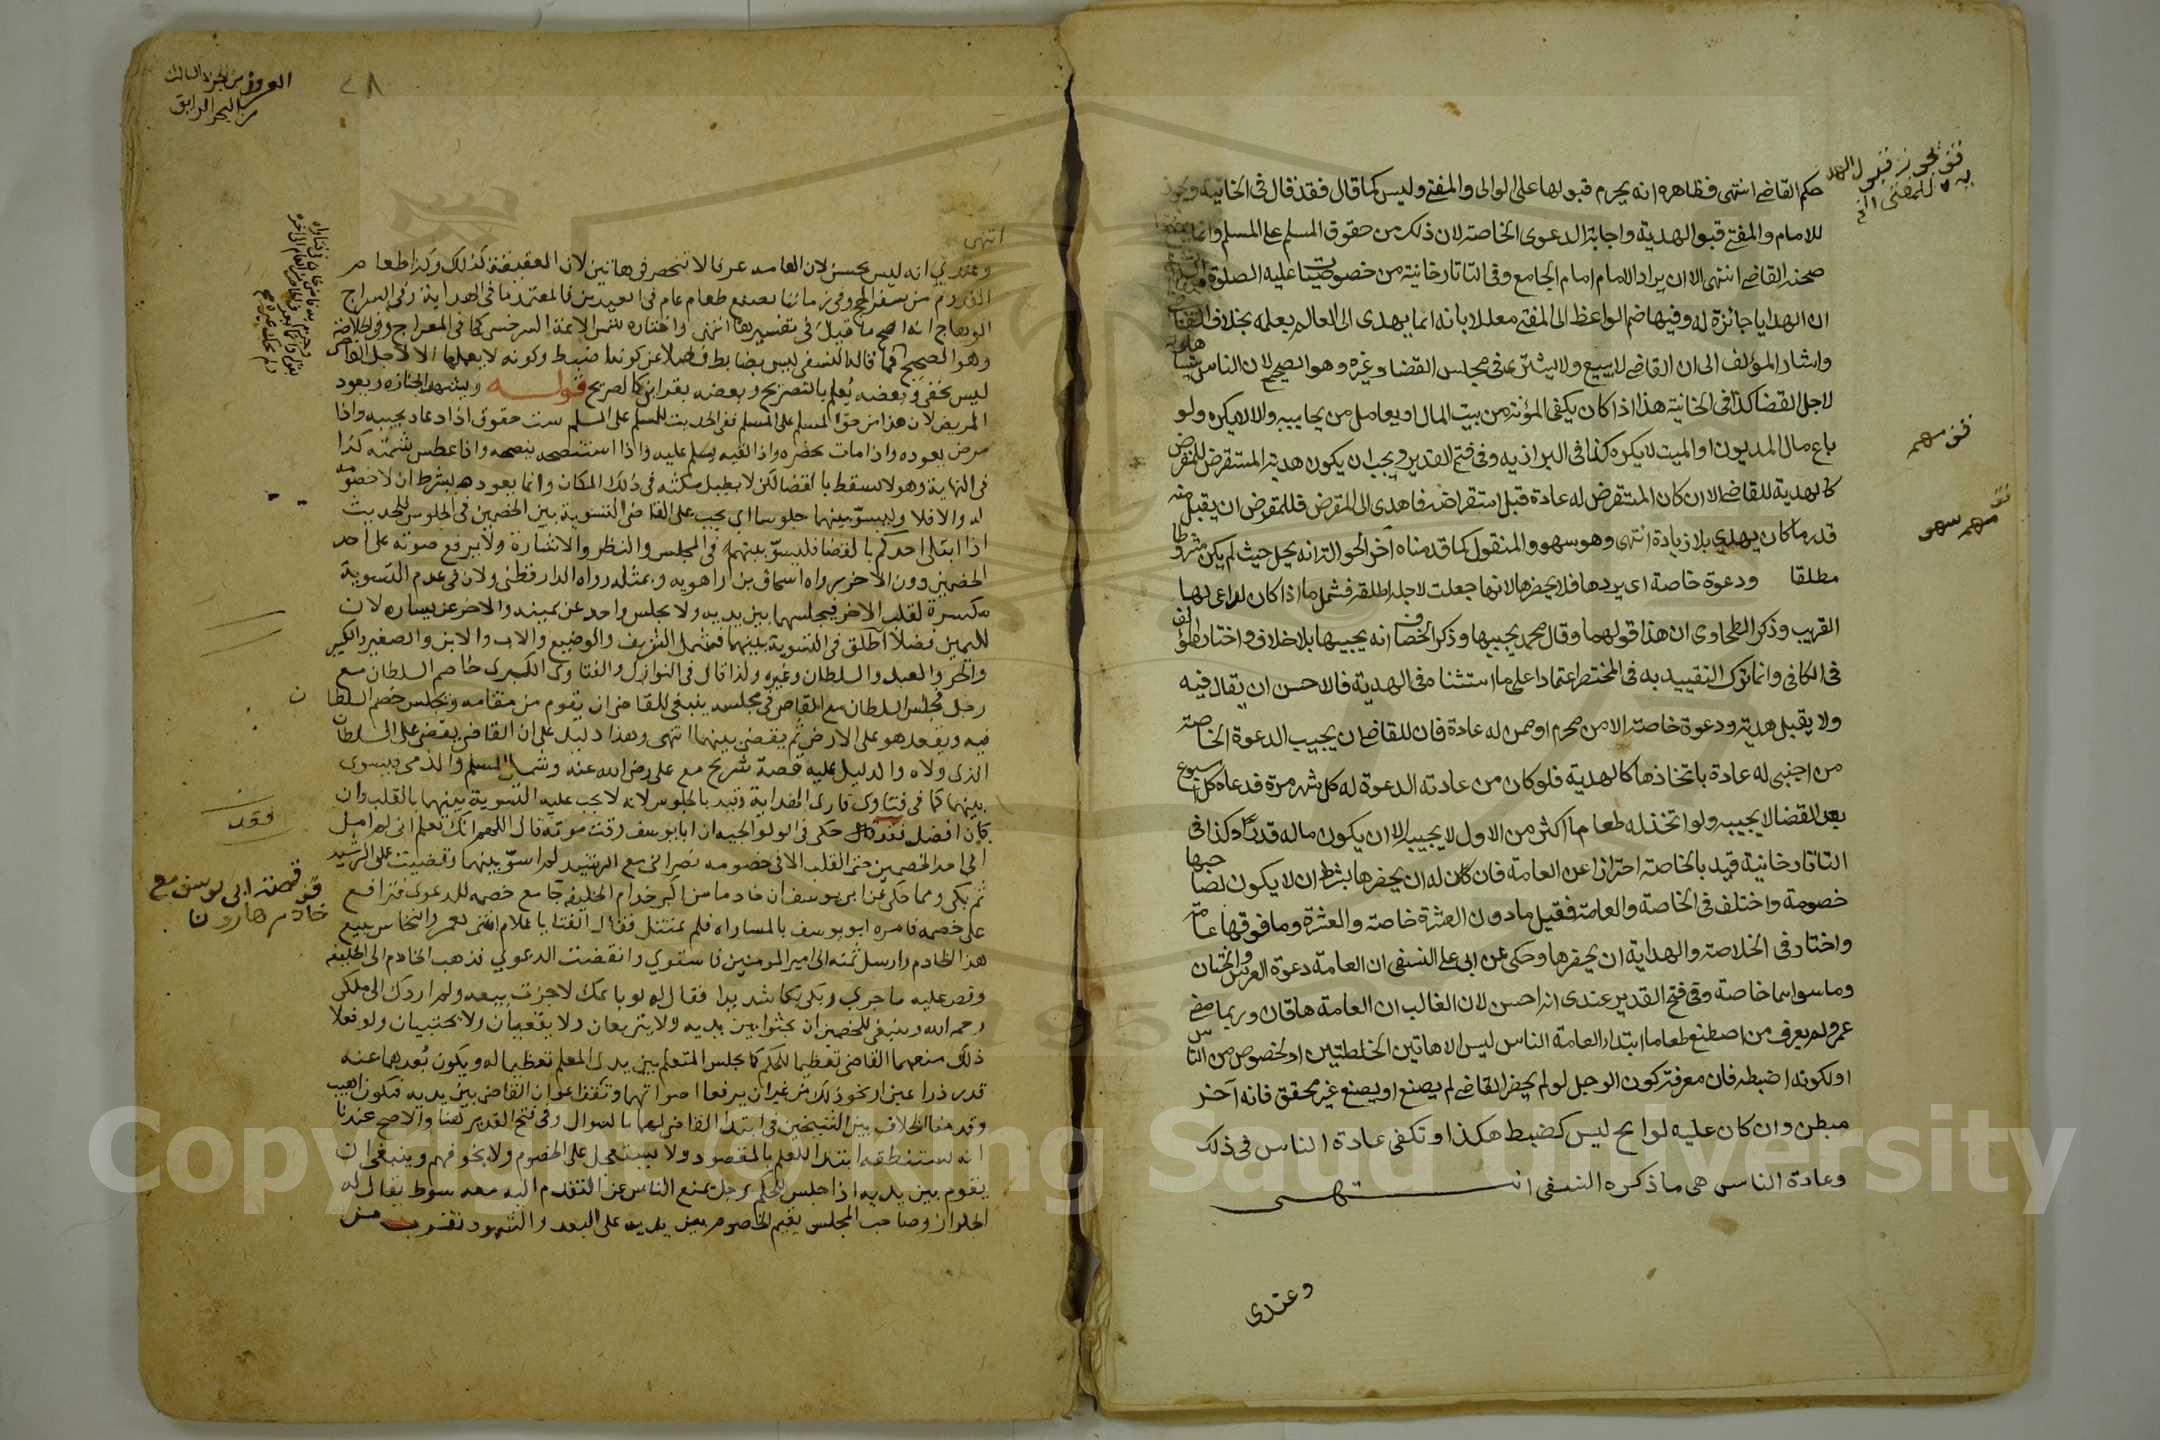 قف يجوز قبول الهد
ية للمفتى الخ
حكم القاضي انتهى فظاهره انه يحرم قبولها على الوالى والمفتي وليس كما قال فقد قال في الخانية ويجوز
للامام والمفتي قبول الهدية واجابة الدعوى الخاصة لان ذلك من حقوق المسلم على المسلم وانما
القاضي انتهى الا ان يراد الامام امام الجامع وفي التاتارخانية من خصوصياته عليه الصلوة
ان الهدايا جائزة له وفيها ضم الواعظ الى المفتي معللا بانه انما يهدى الى العالم بعلمه بخلاف القضا
واشار المؤلف الى ان القاضي لا يبيع ولا يشتري في مجلس القضا وغيره وهو الصحيح لان الناس
لاجل القضا كذا في الخانية هذا اذا كان يكفى المؤنة من بيت المال او يعامل من يحابيه والا لا يكره ولو
باع مال المديون او الميت لا يكره كذا في البزازيه وفي فتح القدير ويجب ان يكون هدية المستقرض للمقرض
كالهدية للقاضي الا ان كان المستقرض له عادة قبل استقراضه فاهدى الى المقرض فللمقرض ان يقبل منه
قدر ما كان يهدي بلا زيادة انتهى وهو سهو والمنقول كما قدمناه آخر الحوالة انه يحل حيث لم يكن مشروطا
مطلقا ودعوة خاصة اى يردها فلا يحضرها لانها جعلت لاجله اطلقه فشمل ما اذا كان الداعى لها
القريب وذكر الطحاوى ان هذا قولهما وقال محمد يجيبها وذكر الخصاف انه يجيبها بلا خلاف واختاره المؤلف
في الكافي وانما ترك التقييد به في المختصر اعتمادا على ما استثناه في الهدية فالاحسن ان يقال فيه
ولا يقبل هدية ودعوة خاصة الا من محرم او ممن له عادة فان للقاضي ان يجيب الدعوة الخاصة
من اجنبى له عادة باتخاذها كالهدية فلو كان من عادته الدعوة له كل شهر مرة فدعاه كل اسبوع
بعد القضا لا يجيبه ولو اتخذ له طعاما اكثر من الاول لا يجيبه الا ان يكون ماله قد زاد كذا في
التاتارخانية قيد بالخاصة احترازا عن العامة فان له ان يحضرها بشرط ان لا يكون لصاحبها
خصومة واختلف في الخاصة والعامة فقيل ما دون العشرة خاصة والعشرة وما فوقها عامة
واختار في الخلاصة والهداية ان يحضرها وحكى عن ابى على النسفى ان العامة دعوة العرس والختان
وما سواهما خاصة وفي فتح القدير عندى انه احسن لان الغالب ان العامة هاتان وربما مضى
عمر ولم يعرف من اصطنع طعاما ابتداء لعامة الناس ليس الا هاتين الخلطتين او لخصوص من الناس
او لكونه اضبط فان معرفة كون الرجل لو لم يحضر القاضي لم يصنع او يصنع غير محقق فانه آخر
مبطن وان كان عليه لوايح ليس كضبط هكذا وتكفى عادة الناس في ذلك
وعادة الناس هى ما ذكره النسفى انتهى
وعندى
قف مهم
قف
مهم سهو
من الجزء الثالث
من البحر الرايق
٢٨
انتهى
وعندي انه ليس بحسن لان العامه عرفا لا تنحصر في هاتين لان العقيقة كذلك وكذا طعام
القدوم من سفر الحج وفي زماننا يصنع طعام عام في العيدين فالمعتمد ما في الهداية وفي السراج
الوهاج انه اصح ما قيل في تفسيرها انتهى واختاره شمس الايمة السرخسى كما في المعراج وفي الخلاصة
وهو الصحيح فما قاله النسفى ليس بضابط فضلا عن كونه اضبط وكونه لا يعملها الا لاجل القاضى
ليس بخفى وبعضه يعلم بالتصريح وبعضه بقراين كالصريح قولــه ويشهد الجنازه ويعود
المريض لان هذا من حق المسلم على المسلم ففى الحديث للمسلم على المسلم ست حقوق اذا دعاه يجيبه واذا
مرض يعوده واذا مات يحضره واذا لقيه يسلم عليه واذا استنصحه ينصحه واذا عطس يشمته كذا
في النهاية وهو لا يسقط بالقضا لكن لا يطيل مكثه في ذلك المكان وانما يعوده بشرط ان لا خصومه
له والا فلا وليسوّ بينهما جلوسا اي يجب على القاضى التسوية بين الخصمين في الجلوس للحديث
اذا ابتلى احدكم بالقضا فليسوّ بينهم في المجلس والنظر والاشارة ولا يرفع صوته على احد
الخصمين دون الاخر رواه اسحاق بن راهويه وبمثله رواه الدارقطنى ولان في عدم التسوية
مكسرة لقلب الاخر فيجلسهما بين يديه ولا يجلس واحد عن يمينه والاخر عن يساره لان
لليمين فضلا اطلق في التسوية بينهما فشمل الشريف والوضيع والاب والابن والصغير والكبير
والحر والعبد والسلطان وغيره ولذا قال في النوازل والفتاوى الكبرى خاصم السلطان مع
رجل فجلس السلطان مع القاضى في مجلسه ينبغى للقاضى ان يقوم من مقامه ويجلس خصم السلطان
فيه ويقعد هو على الارض ثم يقضى بينهما انتهى وهذا دليل على ان القاضى يقضى على السلطان
الذى ولاه والدليل عليه قصة شريح مع على رضى الله عنه وشمل المسلم والذمى فيسوى
بينهما كما في فتاوى قارى الهداية وقيد بالجلوس لانه لا يجب عليه التسوية بينهما بالقلب وان
كان افضل حكى في الولوالجيه ان ابا يوسف وقت موته قال اللهم انك تعلم انى لم امل
الى احد الخصمين حتى القلب الا في خصومه نصرانى مع الرشيد لم اسوّ بينهما وقضيت على الرشيد
ثم بكى ومما حكى عن ابى يوسف ان خادما من اكبر خدام الخليفة جا مع خصمه للدعوى فترافع
على خصمه فامره ابو يوسف بالمساواه فلم يمتثل فقال ائتنا يا غلام النخاس يبيع
هذا الخادم وارسل ثمنه الى امير المومنين فاستوي وانقضت الدعوي فذهب الخادم الى الخليفه
وقص عليه ما جري وبكى بكا شديدا فقال له لو باعك لاجزت بيعه ولم اردك الى ملكى
رحمه الله وينبغى للخصمين ان يجثوا بين يديه ولا يتربعان ولا يقعيان ولا يحتبيان ولو فعلا
ذلك منعهما القاضى تعظيما للحكم كما يجلس المتعلم بين يدى المعلم تعظيما له ويكون بُعدهما عنه
قدر ذراعين او نحو ذلك من غير ان يرفعا اصواتهما وتقف اعوان القاضى بين يديه فيكون اهيب
وقدمنا الخلاف بين الشيخين في ابتدا القاضى لهما بالسوال وفي فتح القدير والاصح عندنا
انه يستنطقه ابتدا للعلم بالمقصود ولا يستعجل على الخصوم ولا يخوفهم وينبغى ان
يقوم بين يديه اذا جلس للحكم رجل يمنع الناس عن التقدم اليه معه سوط يقال له
الجلواز وصاحب المجلس يقيم الخصوم بين يديه على البعد والشهود تقترب من
فقد
قف قصة ابى يوسف مع
خادم هارون
Copyright © King Saud University
1957